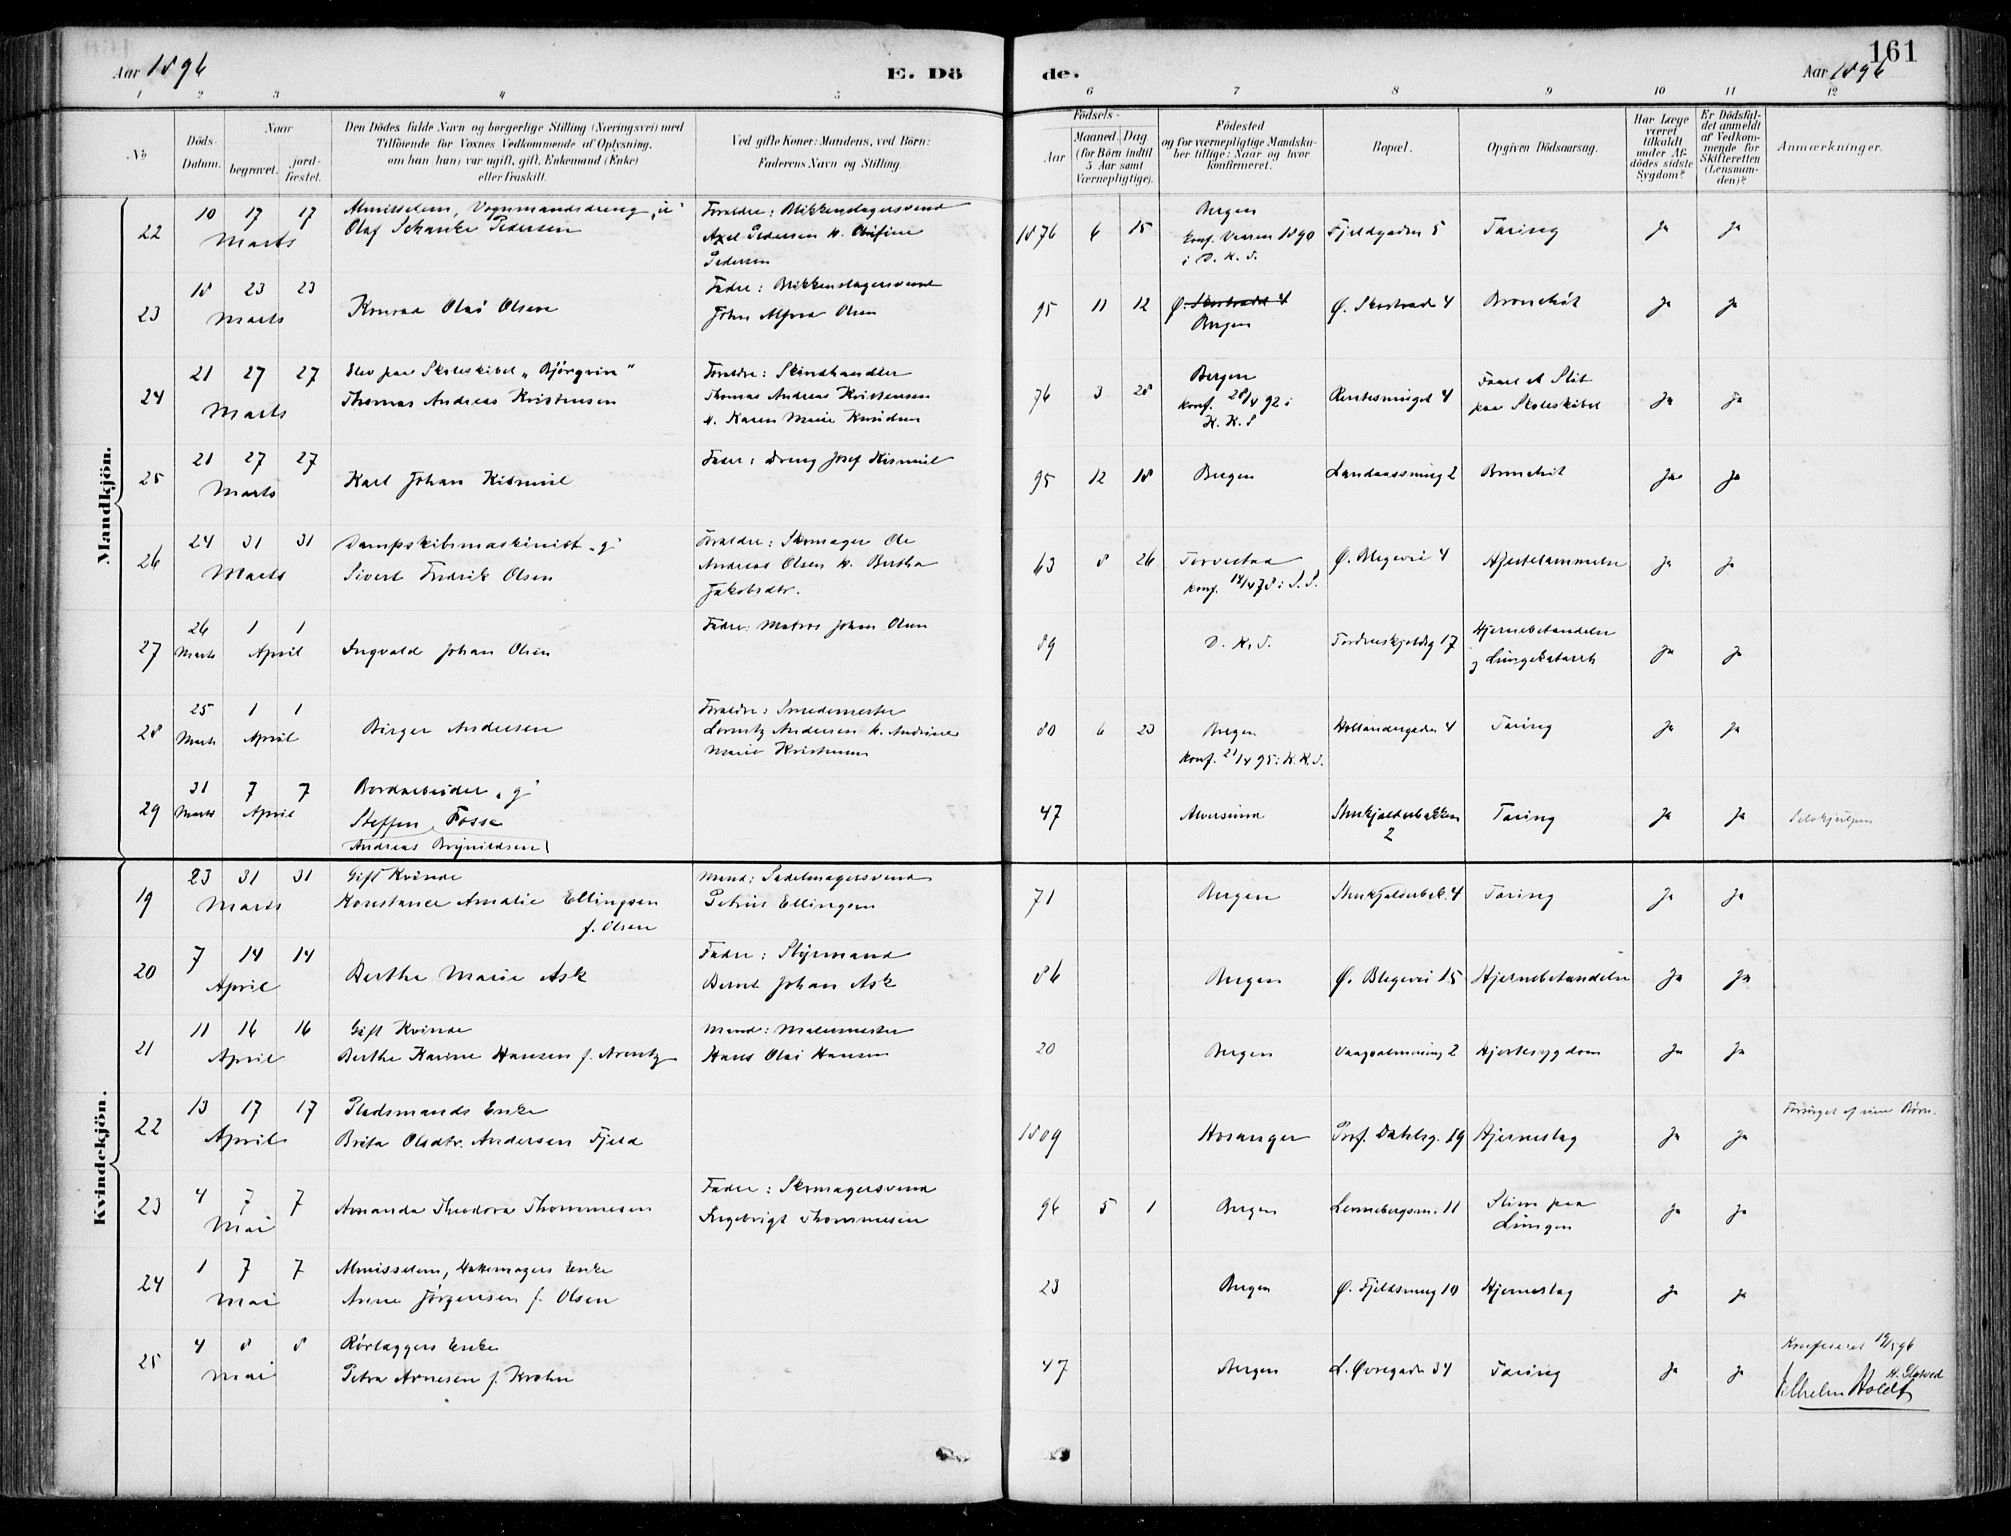 161
Aar 1896
E. Dö
de.
Aar 1896
1 2 3 4 5 6 7 8 9 10 11 12
No
Döds-Datum.
Naar
begravet.
jord-fæstet.
Den Dödes fulde Navn og borgerlige Stilling (Næringsvei) med
Tilföiende for Voxnes Vedkommende af Oplysning,
om han (hun) var ugift, gift, Enkemand (Enke)
eller fraskilt.
Ved gifte Koner: Mandens, ved Börn:
Faderens Navn og Stilling.
Födsels-
Aar
Maaned. Dag
(for Börn indtil
5 Aar samt
Værnepligtige).
Födested
og for værnepligtige Mandska-
ber tillige: Naar og hvor
konfirmeret.
Bopæl.
Opgiven Dödsaarsag.
Har Læge
været
tilkaldt
under Af-
dödes sidste
Sygdom?
Er Dödsfal-
det anmeldt
af Vedkom-
mende for
Skifteretten
(Lensman-
den)?
Anmærkninger.
Mandkjön.
22 10 17 17 Marts Almisselem, Vognmandsdreng, "u"
Olaf Schanke Pedersen
Forældre: Blikkenslagersvend
Axel Pedersen o.
Pedersen
1876 6 15 Bergen
konf. Vaaren 1890
i D. K. S.
Fjeldgaden 5 Tæring Ja Ja
23 18 23 23 Marts Konrad Olai Olsen
Fader: Blikkenslagersvend
Johan Alfred Olsen
95 11 12 Ø. Skostrædet 4
Bergen
Ø. Skostræde 4 Bronchit Ja Ja
24 21 27 27 Marts Elev paa Skoleskibet "Bjørgvin"
Thomas Andreas Kristensen
Forældre: Skindhandler
Thomas Andreas Kristensen
o. Karen Marie Knudsen
76 3 28 Bergen
konf. 28/4 92 i
K. K. S
4 Faaet et Stöt
paa Skoleskibet Ja Ja
25 21 27 27 Marts Karl Johan Kismul
Fader: Dreng Josef Kismul
95 12 18 Bergen Landaassmug 2 Bronchit Ja Ja
26 24 31 31 Marts Dampskibsmaskinist "g"
Sivert Fredrik Olsen
Forældre: Skomager Ole
Andreas Olsen o. Bertha
Jakobsdtr.
63 8 26 Torvestad
konf. 14/4 78 i S. S.
Ø. Blegevei 4 Hjertelammelse Ja Ja
27 26 Marts 1 1 April Ingvald Johan Olsen
Fader: Matros Johan Olsen
89 D. K. S. Tordenskjoldsg 17 Hjernebetændelse
og Lungekatarrh Ja Ja
28 25 Marts 1 1 April Birger Andersen
Forældre: Smedemester
Lorentz Andersen o. Andrine
Marie Kristensen
80 6 23 Bergen
konf. 21/4 95 i K. K. S.
Hollændergaden 4 Tæring Ja Ja
29 31 Marts 7 7 April Bordarbeider, "g"
Steffen Fosse
Andreas Brynildsen
47 Alversund Stenkjælderbakken
2 Tæring Ja Ja Selvhjulpen
Kvindekjön.
19 23 31 31 Marts Gift Kvinde
Konstance Amalie Ellingsen
f. Olsen
Mand: Sadelmagersvend
Petrus Ellingsen
71 Bergen Stenkjælderbak. 4 Tæring Ja Ja
20 7 14 14 April Berthe Marie Ask
Fader: Styrmand
Bernt Johan Ask
86 Bergen Ø. Blegevei 15 Hjernebetændelse Ja Ja
21 11 16 16 April Gift Kvinde
Berthe Karine Hansen f. Arentz
Mand: Malermester
Hans Olai Hansen
20 Bergen Vaagsalmenning 2 Hjertesygdom Ja Ja
22 13 17 17 April Pladsmands Enke
Brita Olsdtr. Andersen Fjeld
1809 Hosanger Prof. Dahlsg. 19 Hjerneslag Ja Ja Forsörget af sine Börn.
23 4 7 7 Mai Amanda Theodora Thommesen
Fader: Skomagersvend
Ingebrigt Thommesen
96 5 1 Bergen 11 Slim paa
Lungen Ja Ja
24 1 7 7 Mai Almisselem, Hattemagers Enke
Anne Jørgensen f. Olsen
23 Bergen Ø. Fjeldsmug 10 Hjerneslag Ja Ja
25 4 8 8 Mai Rörlæggers Enke
Petra Arnesen f. Krohn
47 Bergen L. Øvregaden 34 Tæring Ja Ja
Konfereret 19/5 96
Vilhelm Holdt